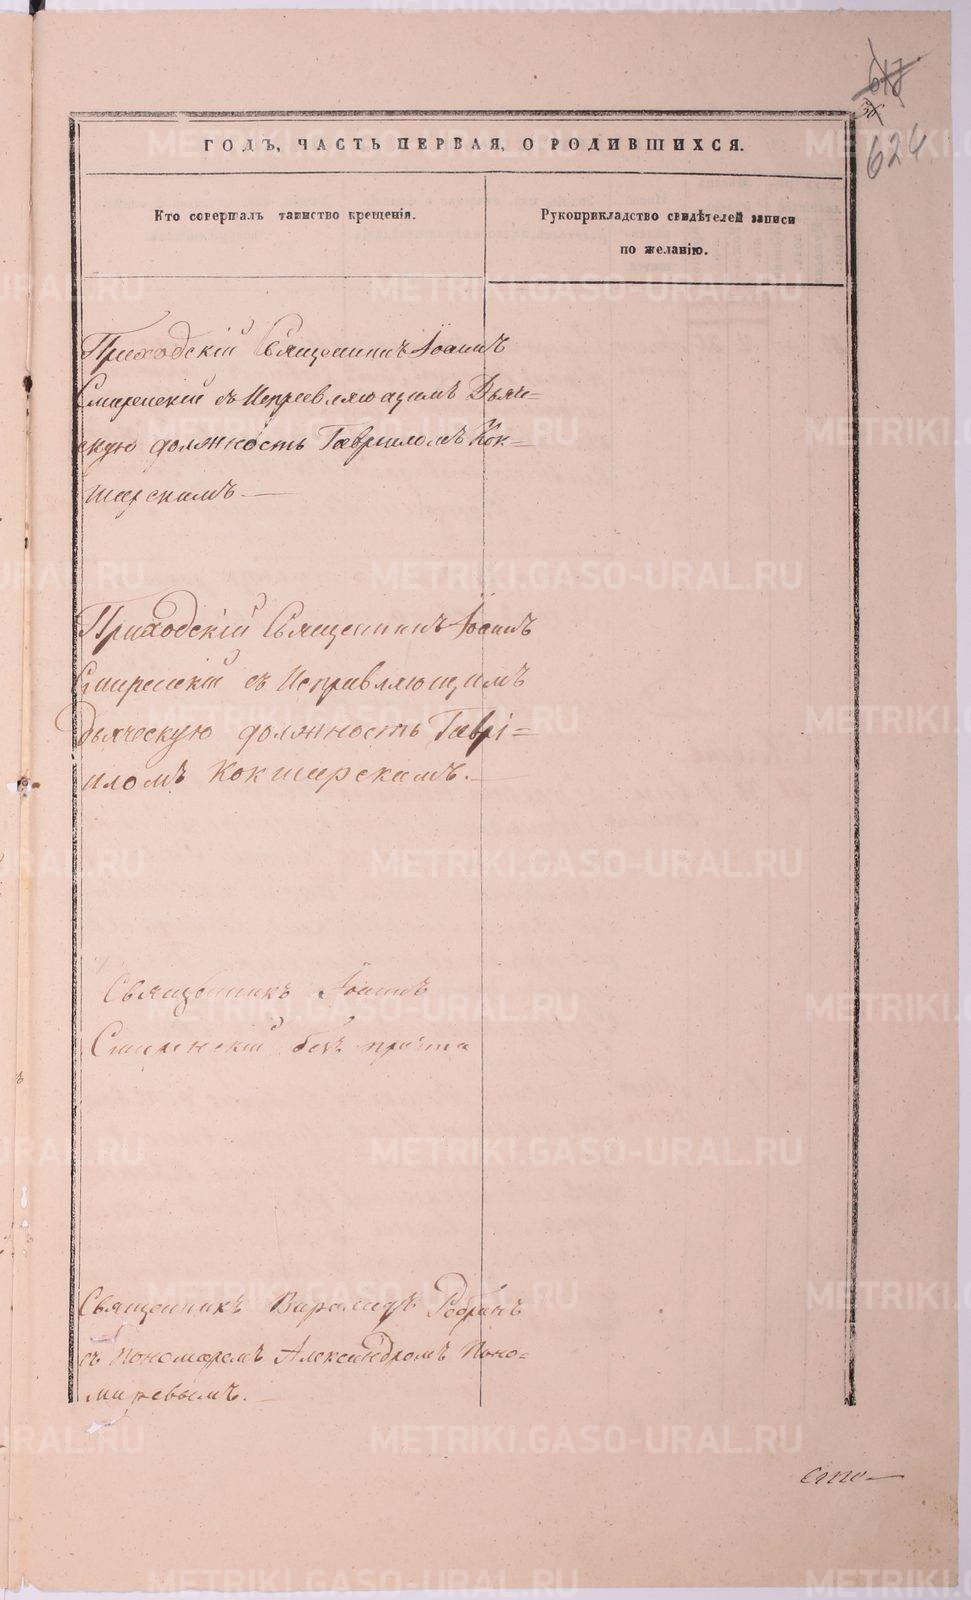 618
624
ГОДЪ, ЧАСТЬ ПЕРВАЯ, О РОДИВШИХСЯ.
Кто совершалъ таинство крещенія.
Рукоприкладство свидѣтелей записи
по желанію.
Приходскій Священникъ Іоаннъ
Смиренскій съ Исправляющимъ Дьяче-
скую должность Гавриломъ Кок-
шарскимъ.
Приходскій Священникъ Іоаннъ
Смиренскій съ Исправляющимъ
дьяческую должность Гаврі-
иломъ Кокшарскимъ.
Священникъ Іоаннъ
Смиренскій безъ причта
Священникъ Варлаамъ
съ пономаремъ Александромъ Поно-
маревымъ.
METRIKI.GASO-URAL.RU